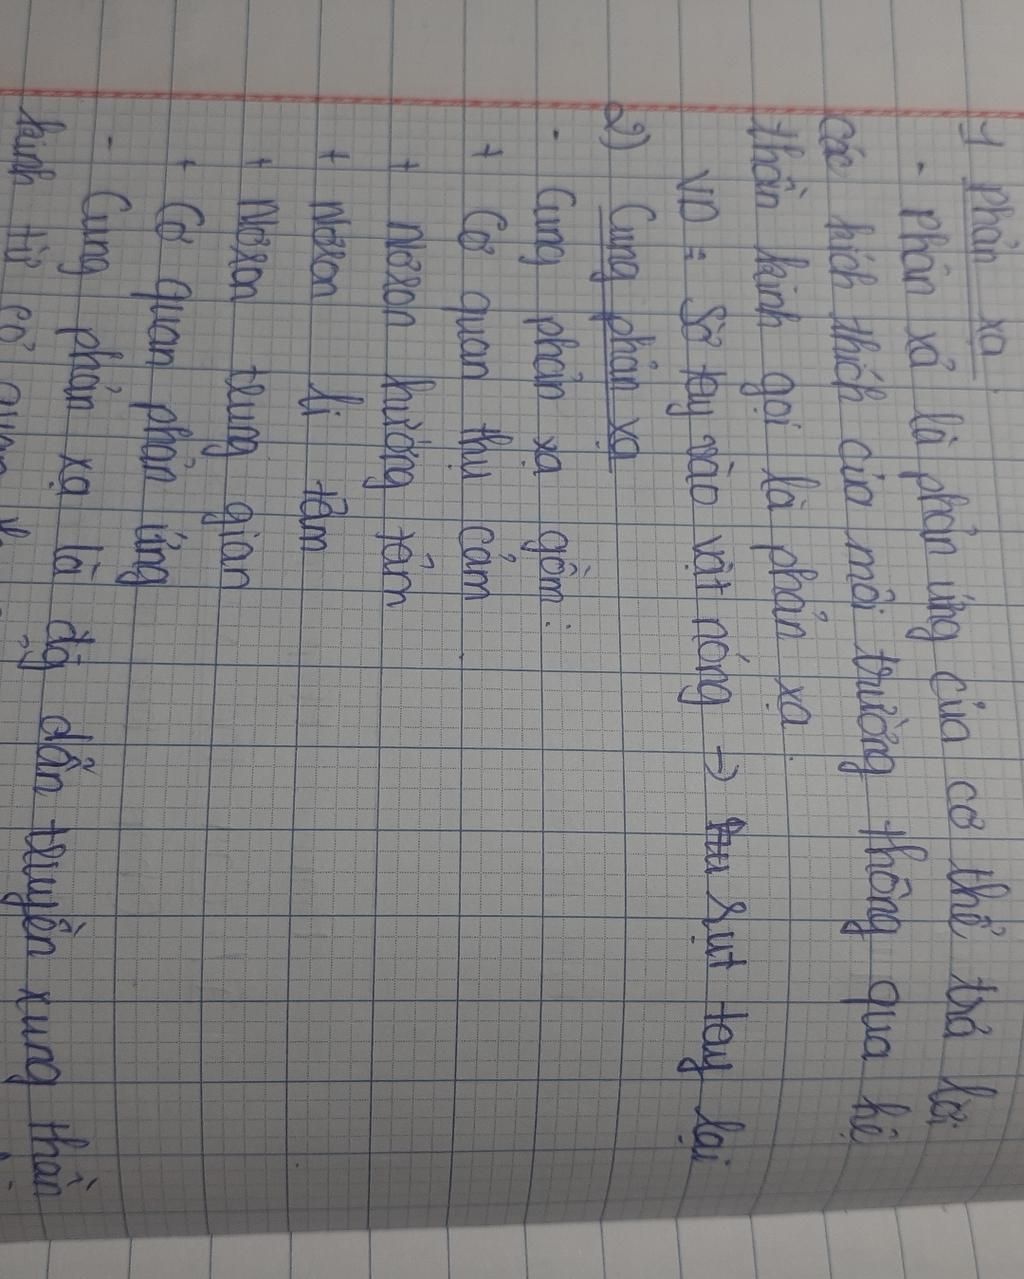 1) Phản xạ
- Phản xả là phản ứng của cơ thể trả lời
các kích thích của môi trường thông qua hệ
thần kinh gọi là phản xạ.
VD: Sờ tay vào vật nóng → rụt tay lại
2) Cung phản xạ
- Cung phản xạ gồm:
+ Cơ quan thụ cảm
+ Nơron hướng tân
+ Nơron li tâm
+ Nơron trung gian
+ Cơ quan phản ứng
- Cung phản xạ là đg dẫn truyền xung thần
kinh từ cơ quan